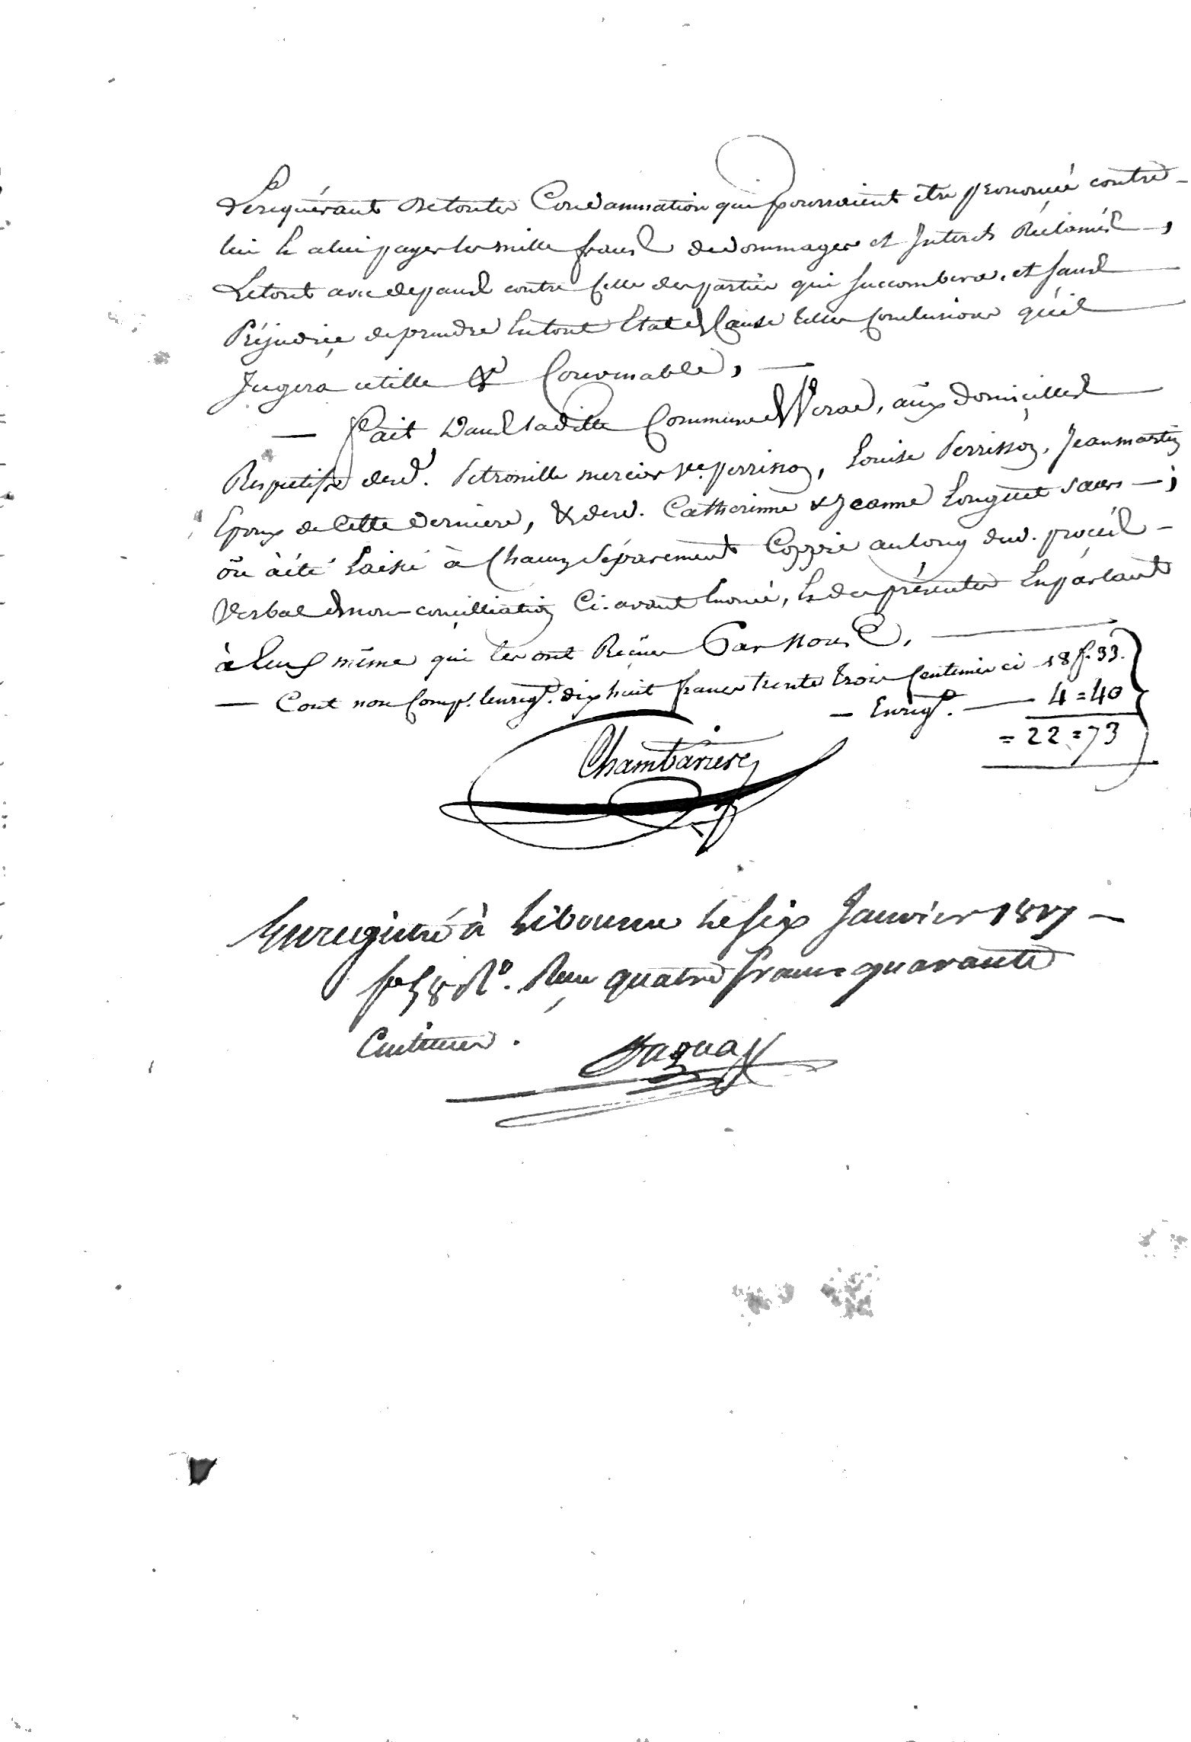 Lerequérant detoutes Condamnation qui pourroient être prononcée contre
lui & a lui payer les mille francs de dommages et Interets Réclamés,
Letout avec depand contre celle des parties qui succombera, et sans
Préjudice de prendre en tout Etat de Cause telles Conclusions qu'il
Jugera utille & Convenable,
— Fait Dans laditte Commune de, aux domicilles
Respectifs desd. Petronille mercier ve. perrinon, Louise Perrinon, Jean martin
Epoux de Cette derniere, & desd. Catherinne & Jeanne Longuet sœurs — ;
oû à été Laissé à Chacun Séparement Coppie au long dud. procès
Verbal de non-concilliation Ci-avant Enoncé, & des présentes En parlant
à Eux même qui les ont Reçues Par Nous,
— Cout non Comp. lenregt. dix huit francs trente trois Centimes ci 18 f. 33.
— Enregt. — 4 = 40
= 22 = 73
Chambarière
Enregistré à Libourne le six Janvier 1817 —
Ro. Reçu quatre francs quarante
Centimes.